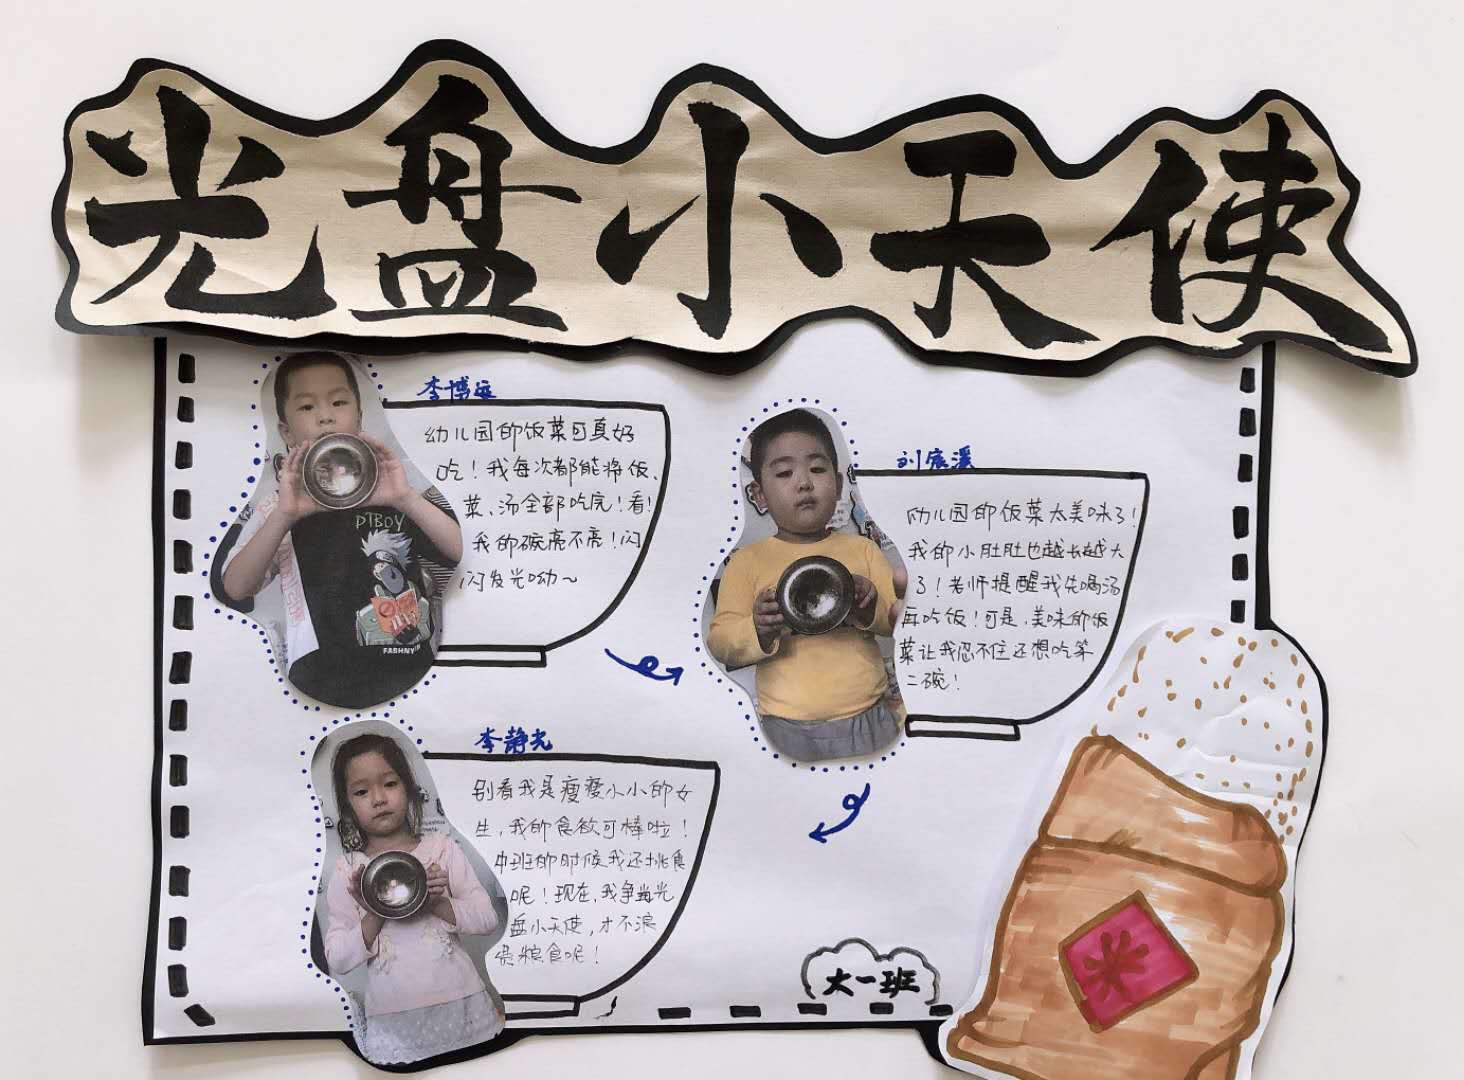 光盘小天使
李博远
幼儿园的饭菜可真好
吃！我每次都能将饭、
菜、汤全部吃完！看！
我的碗亮不亮！闪
闪发光呦～
PTBOY
FASHNY
刘宸溪
幼儿园的饭菜太美味了！
我的小肚肚也越长越大
了！老师提醒我先喝汤
再吃饭！可是，美味的饭
菜让我忍不住还想吃第
二碗！
李静允
别看我是瘦瘦小小的女
生，我的食欲可棒啦！
中班的时候我还挑食
呢！现在，我争当光
盘小天使，才不浪
费粮食呢！
米
大一班